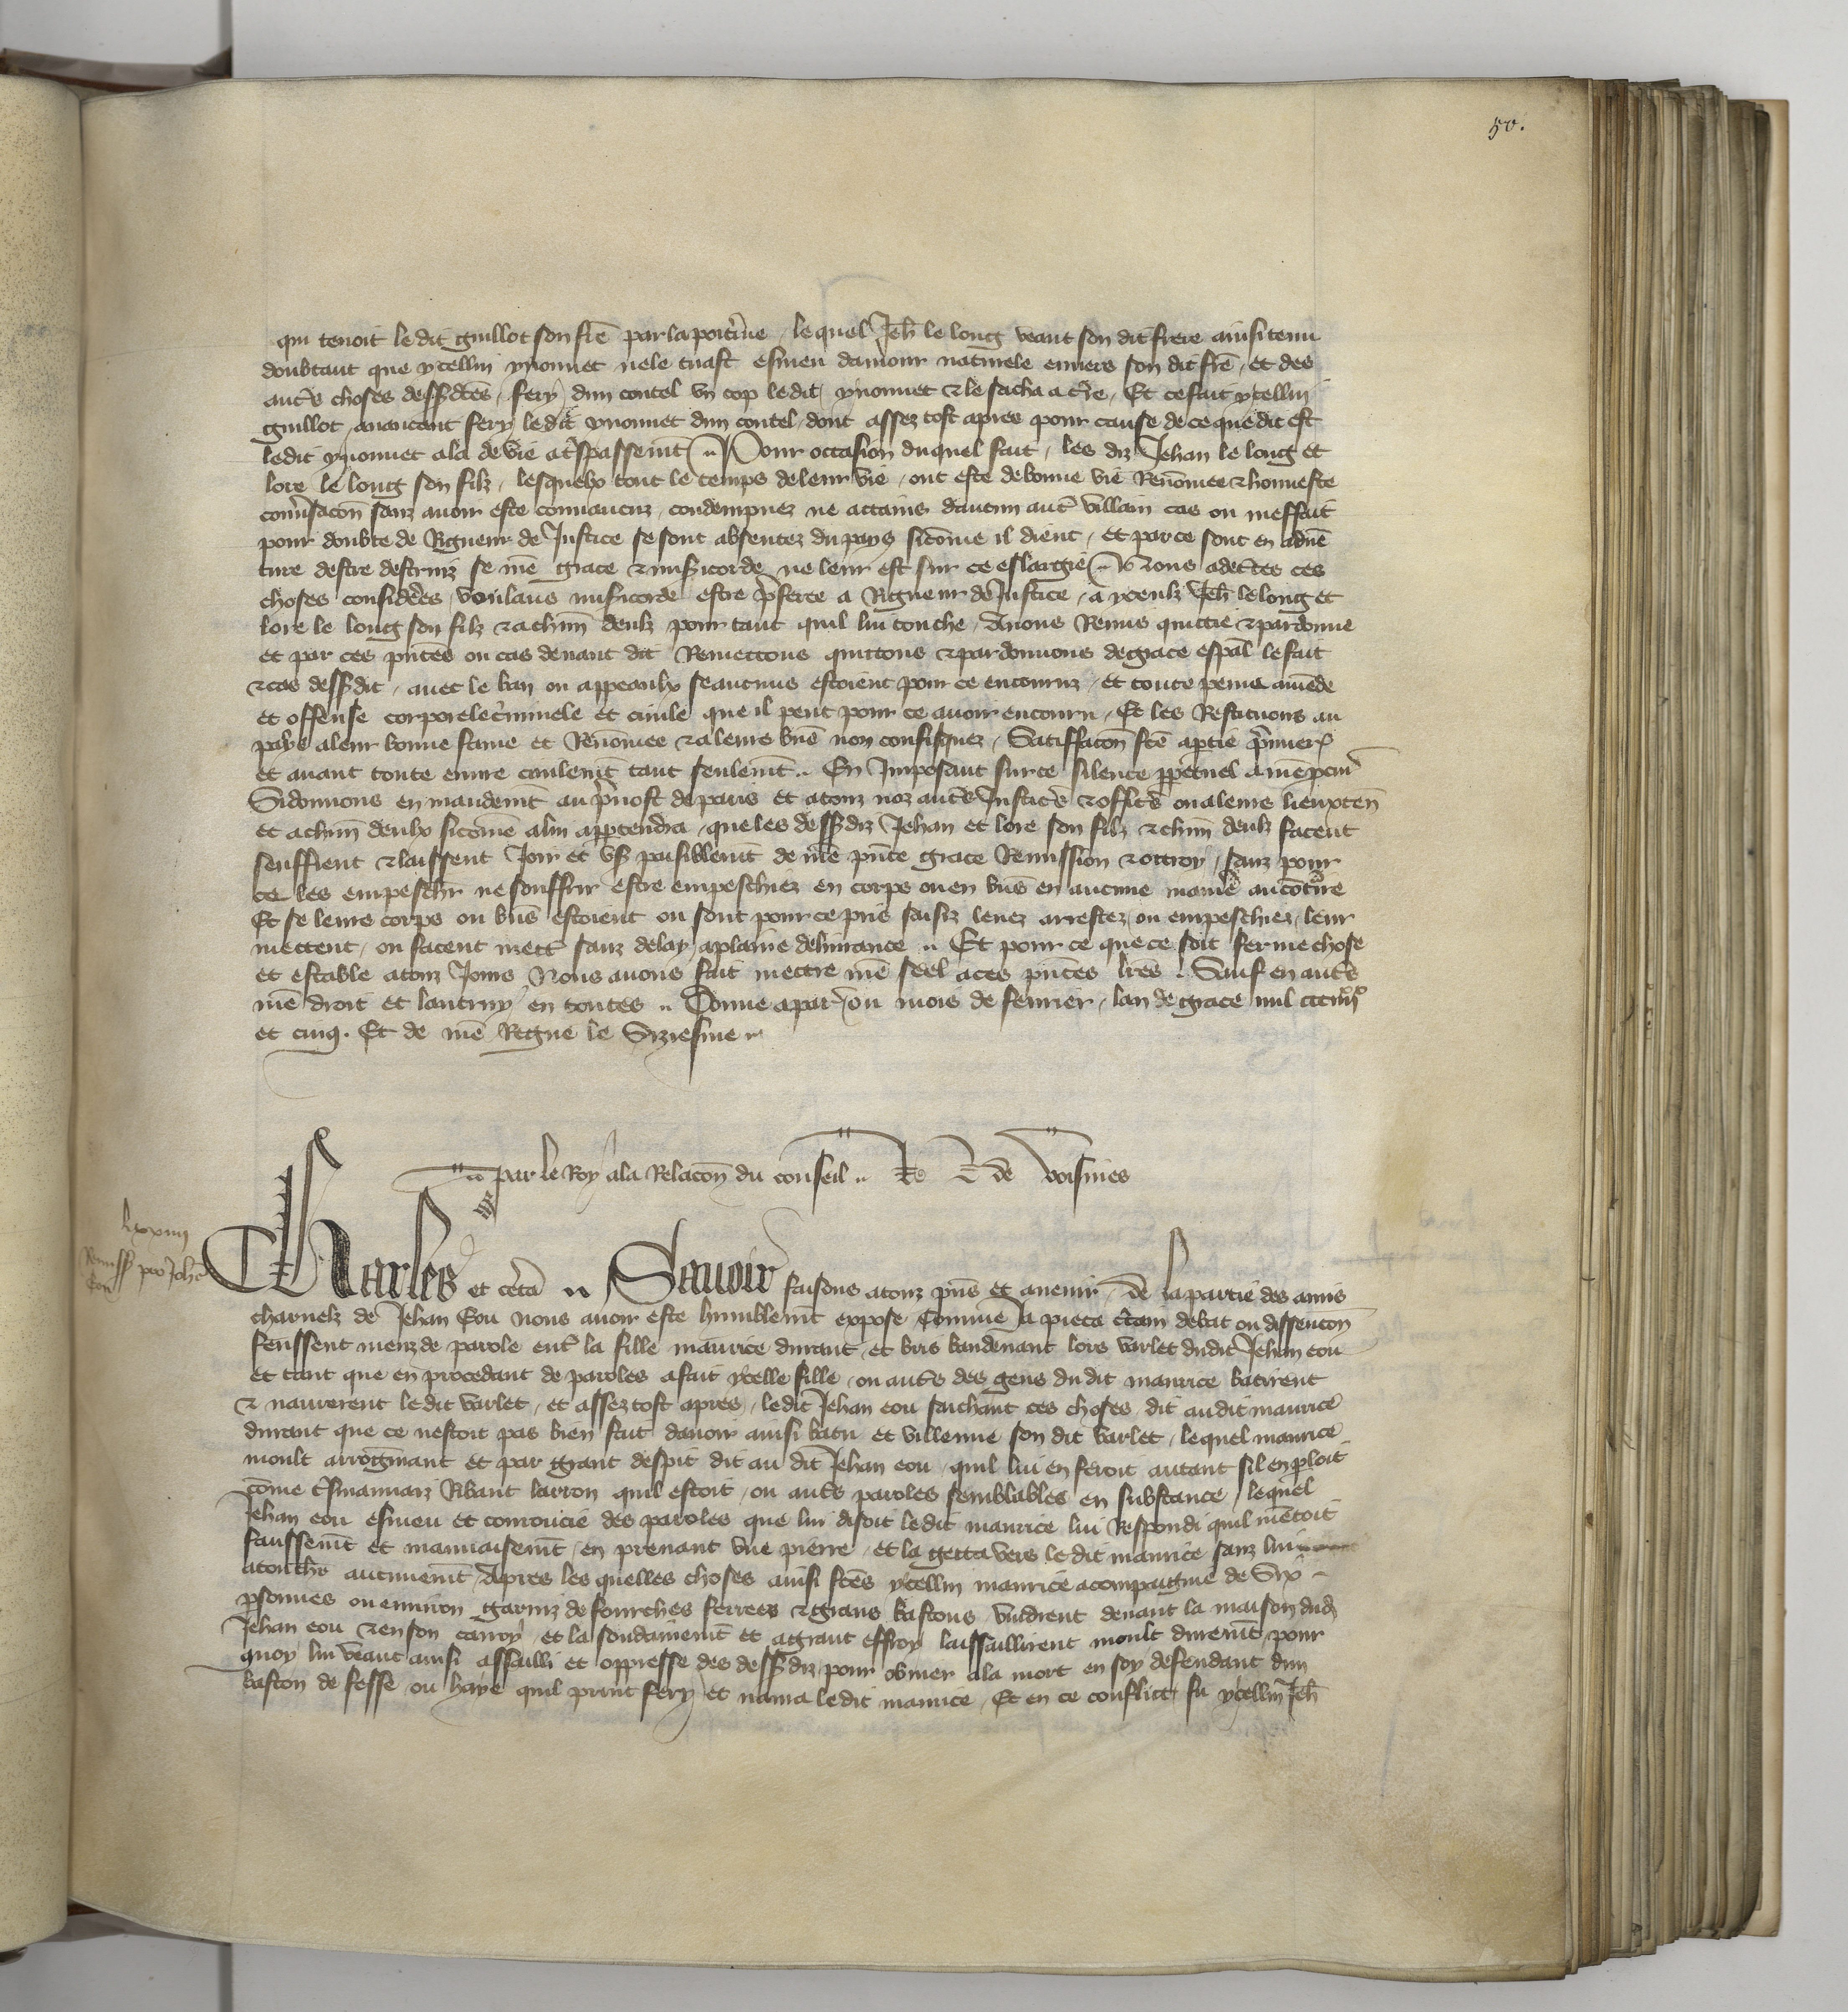 50.
qui tenoit ledit guillot son fr̄e par la poitˀine / lequel Jeh̄ le long veant son dit frere ainsi tenu
doubtant que ycellui ynonnet ne le tuast esmeu damour naturele enuers son dit fr̄e / et des
autˀs choses dessˀdc̄es / fery dun coutel vn cop ledit ynonnet & le sacha a tˀre / Et ce fait ycellui
guillot auancant fery ledit ynonnet dun coutel / dont assez tost apres pour cause de ce que dit est
ledit ynonnet ala de vie a tˀspassemt̄ .. Pour occasion duquel fait / les diz Jehan le long et
lore le long son filz / lesquelx tout le temps de leur vie / ont este de bonne vie Renōmee & honneste
conuˀsacōn sanz auoir este conuaincuz / condempnez ne attains daucun autˀ villain cas ou meffait
pour doubte de Rigueur de Justice se sont absentez du pays sicōme il dient / et par ce sont en aduē
ture destre destruiz se nr̄e grace & misˀicorde ne leur est sur ce eslargie .. Nous adecˀtes ces
choses considˀees / voulans misˀicorde estre pˀferee a Rigueur de Justice / a yceulz Jeh̄ le long et
lore le long son filz & a chūn deulz pour tant quil lui touche / Auons Remis quittie & pardonne
et par ces pn̄tes ou cas deuant dit Remettons quittons & pardonnons de grace esp̄al le fait
& cas dessˀdit / auec le ban ou appeaulx se aucuns estoient pour ce encouruz / et toute peine amēde
et offense corporele cˀiminele et ciuile que il peut pour ce auoir encouru / Et les Restituons au
pays a leur bonne fame et Renōmee & a leurs biēs non confisquez / Satisfacōn fc̄e a partie pˀmierˀ
et auant toute euure ciuilemt̄ tant seulemt̄ .. En Imposant sur ce silence ppetuel a nr̄e pcurˀ
Si donnons en mandemt̄ au pˀuost de paris et a touz noz autˀs Justicˀs & officˀs ou a leurs lieuxten̄
et a chūn deulx sicōme a lui appartendra / que les dessˀdiz Jehan et lore son filz & chūn deulz facent
seuffrent & laissent Joir et vsˀ paisiblemt̄ de nr̄e pn̄te grace Remission & ottroy / sanz pour
ce les empeschˀ ne souffrir estre empeschiez en corps ou en biēs en aucune maniēe au cōtˀire
Et se leurs corps ou biēs estoient ou sont pour ce pris saisiz leuez arrestez ou empeschiez / leur
mettent / ou facent mettˀ sanz delay a plaine deliurance .. Et pour ce que ce soit ferme chose
et estable a touz Jours Nous auons fait mettre nr̄e seel a ces pn̄tes lr̄es .. Sauf en autˀs
nr̄e droit et lautruy en toutes .. Donne a parˀ ou mois de feurier / lan de grace mil ccc iiijxx
et cinq. Et de nr̄e Regne le Siziesme ..
par le Roy a la Relacōn du conseil .. de Voisines
lxxiiij
Remissˀ pro Johē
Eou
Charles et cetˀa .. Sauoir faisons a touz pn̄s et auenir / De la partie des amis
charnelz de Jehan Eou Nous auoir este humblemt̄ expose / Comme Ja pieca cˀtain debat ou dissencōn
feussent meuz de parole entˀ la fille maurice durant / et bris bandenant lors varlet dudit Jehan eou
et tant que en procedant de paroles a fait ycelle fille / ou autˀs des gens du dit maurice batirent
& naurerent ledit varlet / et assez tost apres / ledit Jehan eou saichant ces choses / dit audit maurice
durant que ce nestoit pas bien fait dauoir ainsi batu et villenne son dit varlet / lequel maurice
moult arrogmant et par grant despit dit au dit Jehan eou / quil lui en feroit autant sil en ploit
cōme tˀsmauuaiz Ribaut larron quil estoit / ou autˀs paroles semblables en substance / lequel
Jehan eou esmeu et courroucie des paroles que lui disoit ledit maurice lui Respondi quil mētoit
faussemt̄ et mauuaisemt̄ / en prenant vne pierre / et la getta vers ledit maurice sanz lui
atouchˀ aucunemt̄ / Apres les quelles choses ainsi fc̄es ycellui maurice acompaigne de Six
psonnes ou enuiron garniz de fourches ferrees & grans bastons vuidrent deuant la maison dudˀ
Jehan eou & en son carroy / et la soudainemt̄ et a grant effroy laissaillirent moult duremt̄ / pour
quoy lui veant ainsi assailli et oppresse des dessˀdiz / pour obuier a la mort en soy defendant dun
baston de fesse ou haye quil print fery et naura ledit maurice / Et en ce conflict fu ycellui Jeh̄